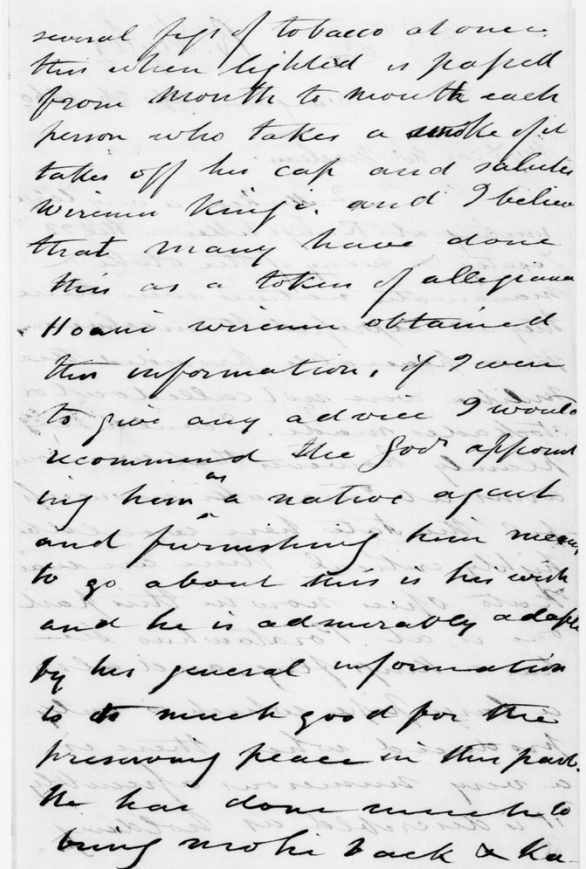 several figs of tobacco at once.
this when lighted is passed
from mouth to mouth each
person who takes a smoke of it
takes off his cap and salutes
wiremu King. and I believe
that many have done
this as a token of allegiance
Hoani wiremu obtained
this information, if I were
to give any advice I would
recommend the Govt appoint
ing him as a native agent
and furnishing him means
to go about this is his wish
and he is admirably adapted
by his general information
to do much good for the
preserving peace in this part.
He has done much to
bring mohi back & Ka-